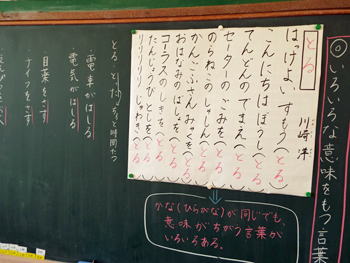 ◎いろいろな意味をもつ言葉
とる
川崎 洋
はっけよい すもう(とる)
こんにちは ぼうし(とる)
てんどんの でまえ(とる)
セーターの ごみを(とる)
のらねこの しゃしん(とる)
かんごふさん みゃくを(とる)
おはなみの ばしょを(とる)
コーラスの しきを(とる)
たんじょうび としを(とる)
リリリリリ じゅわき(とる)
かな(ひらがな)が同じでも、
意味がちがう言葉が
いろいろある。
とる
電車がはしる
電気がはしる
目薬をさす
ナイフをさす